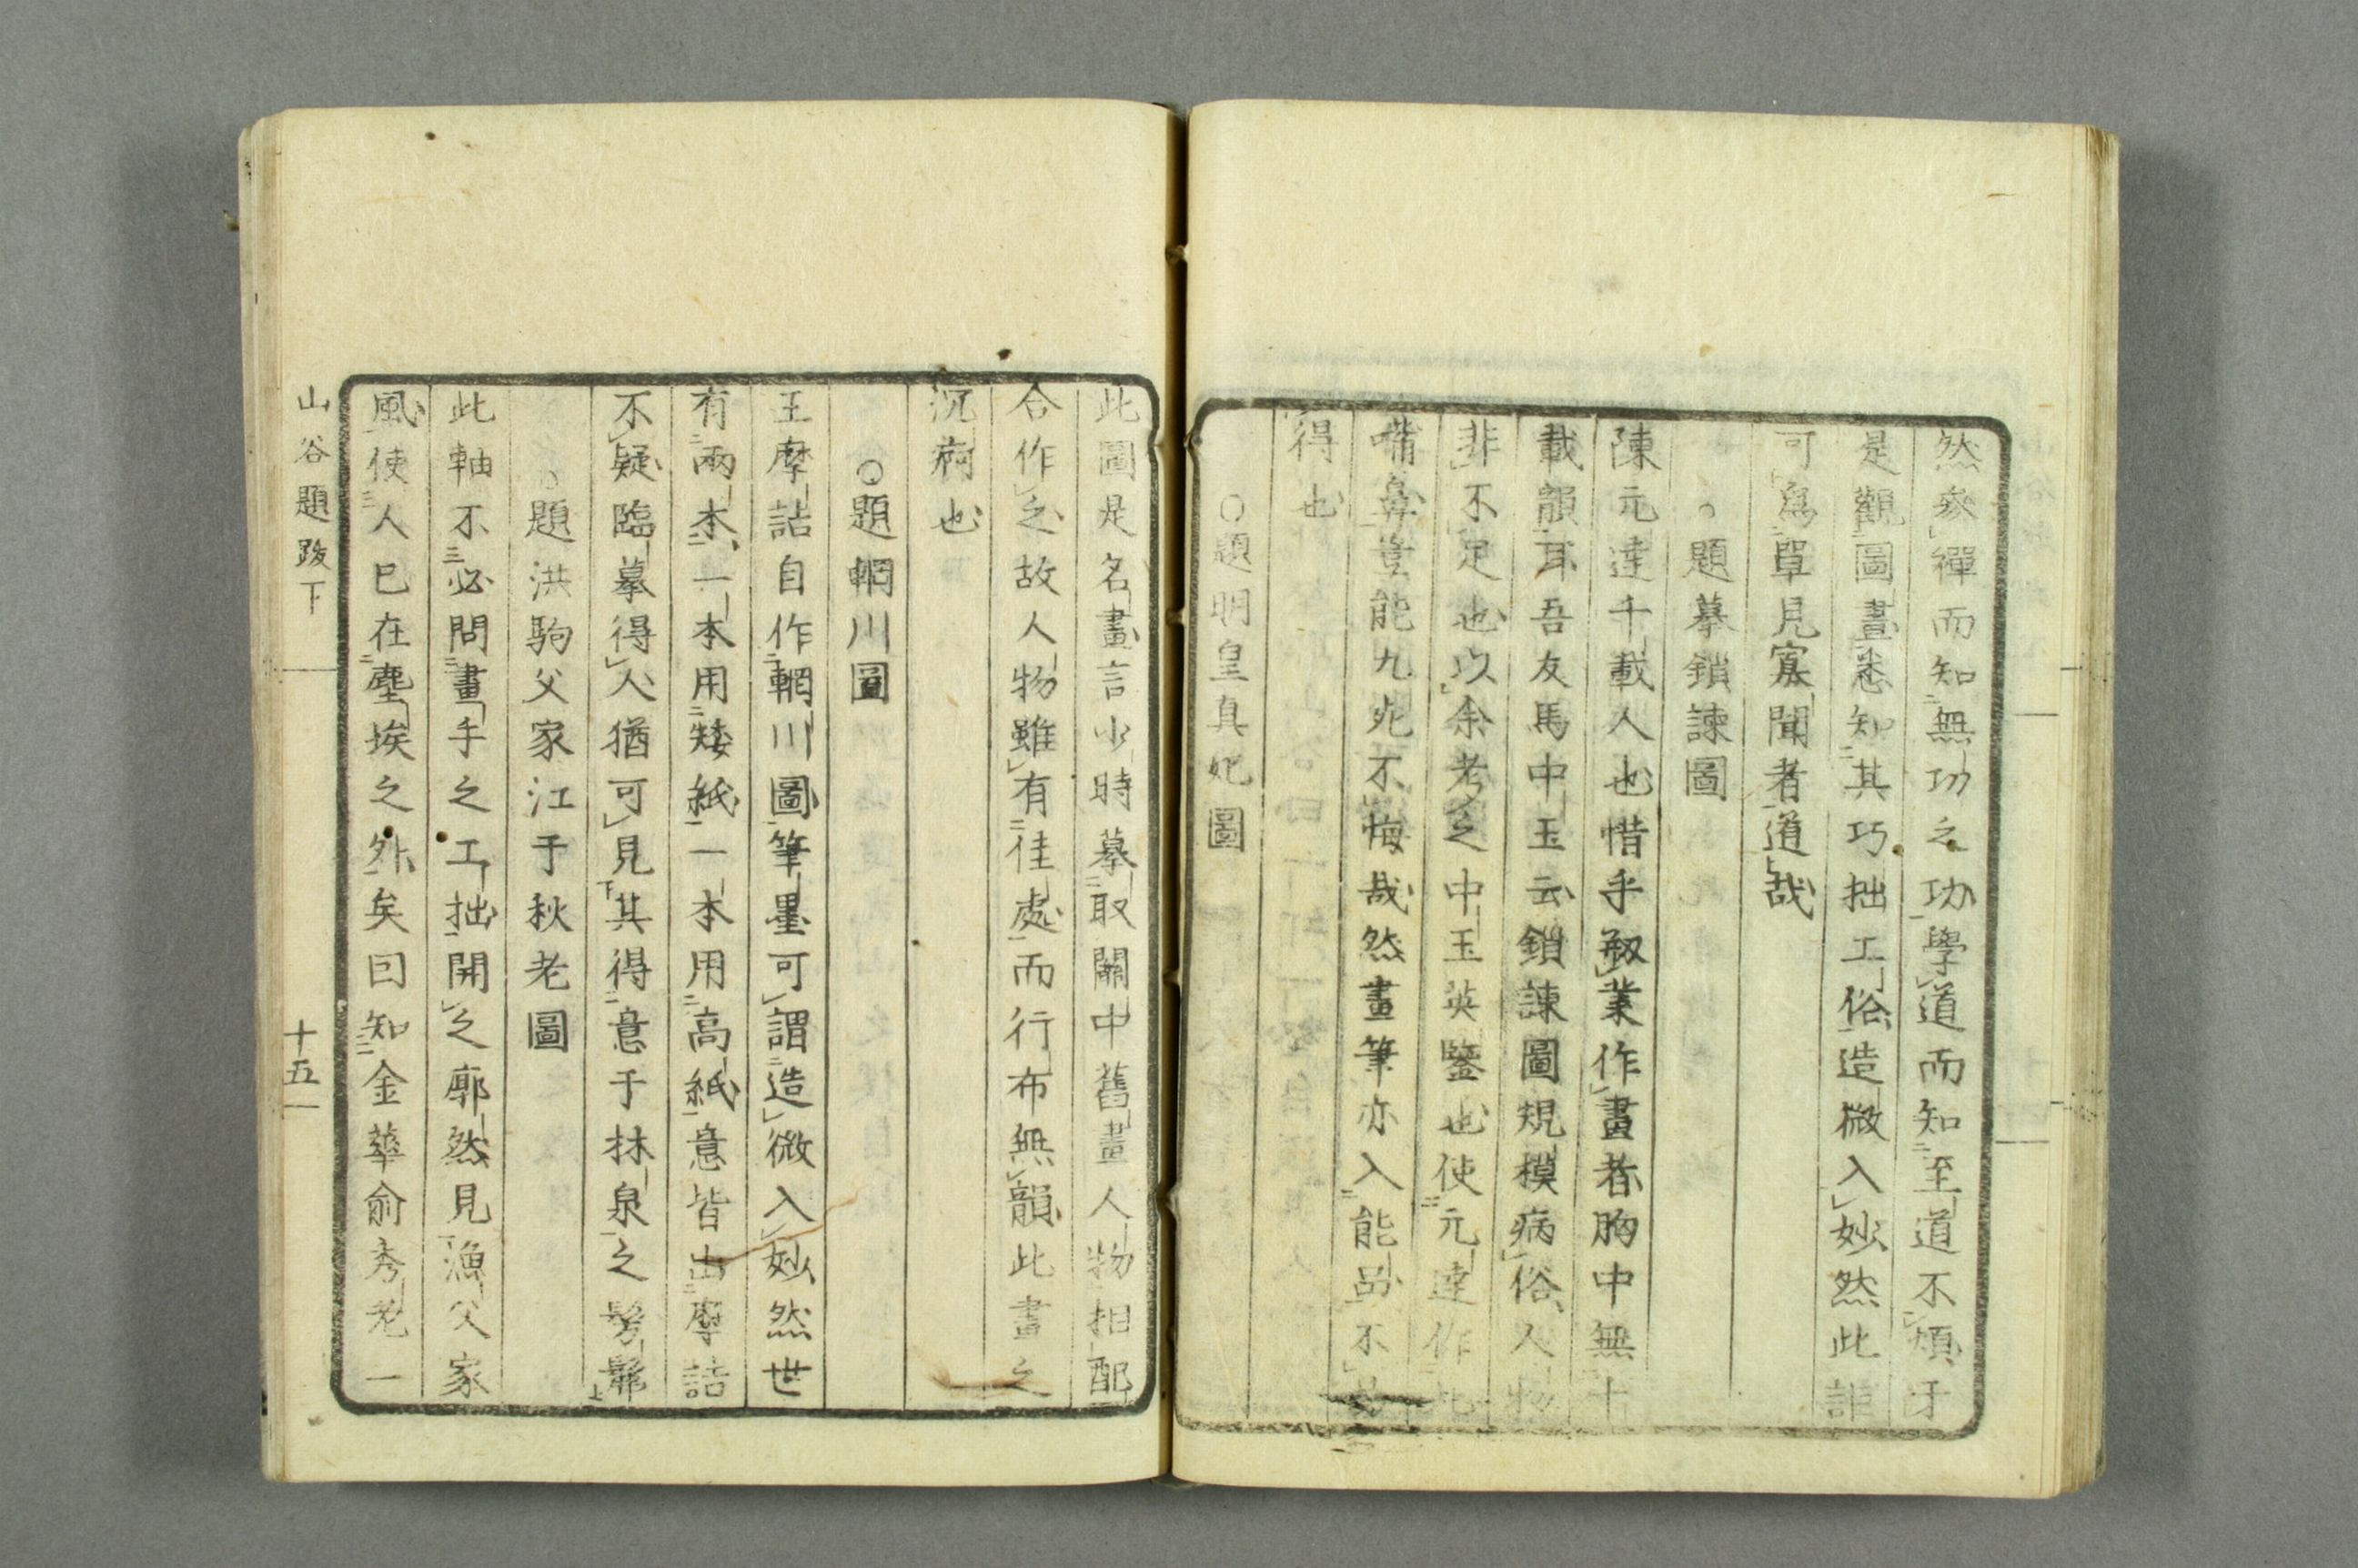 然參禪而知無功之功學道而知至道不煩于
是觀圖畫悉知其巧拙工俗造微入妙然此詎
可爲單見寡聞者道哉
○題摹鎖諫圖
陳元達千載人也惜乎叙業作畫者胸中無千
載韻耳吾友馬中玉云鎖諫圖規模病俗人物
非不足也以余考之中玉英鑒也使元達作此
觜鼻豈能九死不悔哉然畫筆亦入能品不
得也
○題明皇真妃圖
此圖是名畫言少時摹取關中舊畫人物相配
合作之故人物雖有佳處而行布無韻此畫之
沉痾也
○題輞川圖
王摩詰自作輞川圖筆墨可謂造微入妙然世
有兩本一本用矮紙一本用高紙意皆出摩詰
不疑臨摹得人猶可見其得意于林泉之髣髴
○題洪駒父家江于秋老圖
此軸不必問畫手之工拙開之廓然見漁父家
風使人已在塵埃之外矣回知金華俞秀老一
山谷題跋下
十五